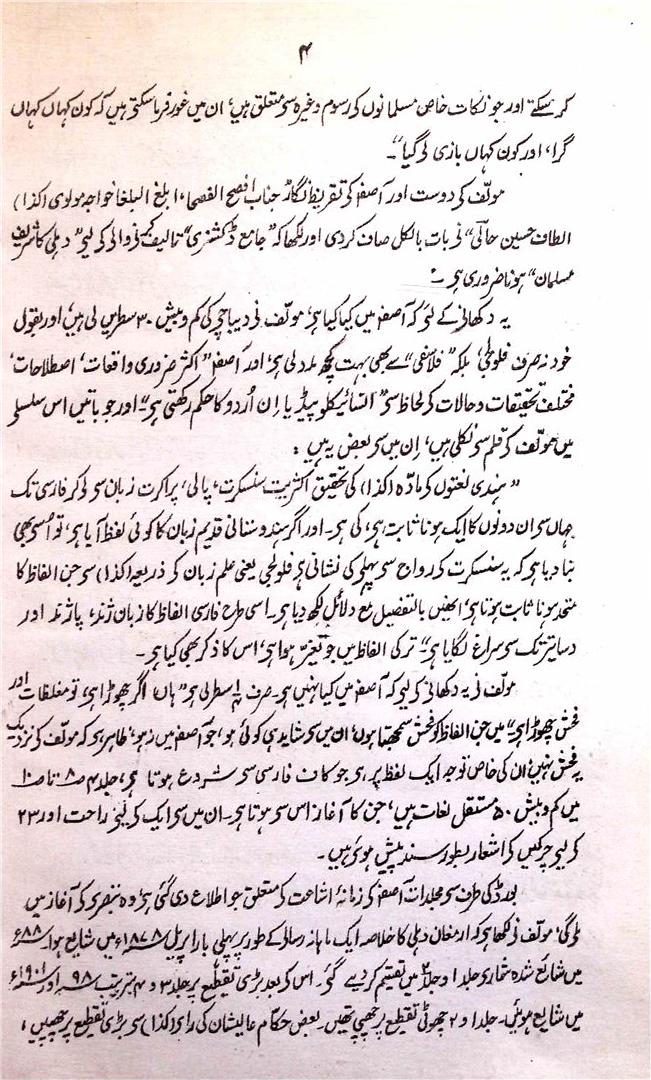 ۴
کر سکتے اور جو نکات خاص مسلمانوں کی رسوم وغیرہ سی متعلق ہیں، ان میں غور فرما سکتی ہیں کہ کون کہاں کہاں
گرا، اور کون کہاں بازی لی گیا“۔
مولّف کی دوست اور آصفہ کی تقریظ نگار جناب افصح الفصحا، ابلغ البلغا خواجہ مولوی (کذا)
الطاف حسین حالی“ نی بات بالکل صاف کردی اور لکھا کہ ”جامع ڈکشنری“ تالیف کرنی والی کی لیی ”دہلی کا شریف
مسلمان“ ہونا ضروری ہی۔
یہ دکھانی کے لئی کہ آصفہ میں کیا کیا ہی، مولّف نی دیباچی کی کم و بیش ۳۰ سطریں لی ہیں، اور بقول
خود نہ صرف فلولجی، بلکہ ”فلاسفی“ سے بھی بہت کچھ مدد لی ہی، اور آصفہ ”اکثر ضروری واقعات، اصطلاحات،
مختلف تحقیقات و حالات کی لحاظ سی ”انسائیکلو پیڈیا اِن اُردو کا حکم رکھتی ہی“۔ اور جو باتیں اس سلسلی
میں مولّف کی قلم سی نکلی ہیں، اِن میں سی بعض یہ ہیں:
”ہندی لغتوں کی مادّہ (کذا) کی تحقیق اکثریت سنسکرت، پالی، پراکرت زبان سی لی کر فارسی تک
جہاں سی ان دونوں کا ایک ہونا ثابت ہی، کی ہی۔ اور اگر ہندوستانی قدیم زبان کا کوئی لفظ آیا ہی، تو اُسی بھی
بتا دیا ہی کہ یہ سنسکرت کی رواج سی پہلی کی نشانی ہی فلولجی یعنی علم زبان کی ذریعہ (کذا) سی جن الفاظ کا
متحد ہونا ثابت ہوتا ہی، انھیں بالتفصیل مع دلائل لکھ دیا ہی۔ اسی طرح فارسی الفاظ کا زبان ژند، پاژند اور
دساتیر تک سی سراغ لگایا ہی“ ترکی الفاظ میں جو تغیّر ہوا ہی، اس کا ذکر بھی کیا ہی۔
مولّف نی یہ دکھانی کی لیی کہ آصفہ میں کیا نہیں ہی۔ صرف سطر لی ہی ”ہاں، اگر چھوڑا ہی، تو مغلظات اور
فحش چھوڑا ہی“ میں جن الفاظ کو فحش سمجھتا ہوں، ان میں سی شاید ہی کوئی ہو، جو آصفہ میں نہ ہو، ظاہر ہی کہ مولّف کی نزدیک
یہ فحش نہیں، ان کی خاص توجہ ایک لفظ پر ہی جو کاف فارسی سی شروع ہوتا ہی، جلد ۴ ص ۸ تا ص ۱۰
میں کم و بیش ۵۰ مستقل لغات ہیں، جن کا آغاز اس سی ہوتا ہی۔ ان میں سی ایک کی لئی راحت اور ۲۳
کی لیی چرکین کی اشعار بطور سند پیش ہوئی ہیں۔
بورڈ کی طرف سی مجلدات آصفہ کی زمانۂ اشاعت کی متعلق جو اطلاع دی گئی ہی، وہ تبصری کی آغاز میں
ملی گی، مولّف نی لکھا ہی کہ ارمغان دہلی کا خلاصہ ایک ماہانہ رسالی کے طور پر پہلی بار اپریل ۱۸۷۸ء میں شایع ہوا۔ ۱۸۸۸ء
میں شائع شدہ شماری جلد ۱ و جلد ۲ میں تقسیم کردیے گئی۔ اس کی بعد بڑی تقطیع پر جلد ۳ و ۴ بترتیب ۹۸ء اور ۱۹۰۱ء
میں شایع ہوئیں۔ جلد ۱ و ۲ چھوٹی تقطیع پر چھپی تھیں۔ بعض حکام عالیشان کی رای (کذا) سی بڑی تقطیع پر چھپیں،